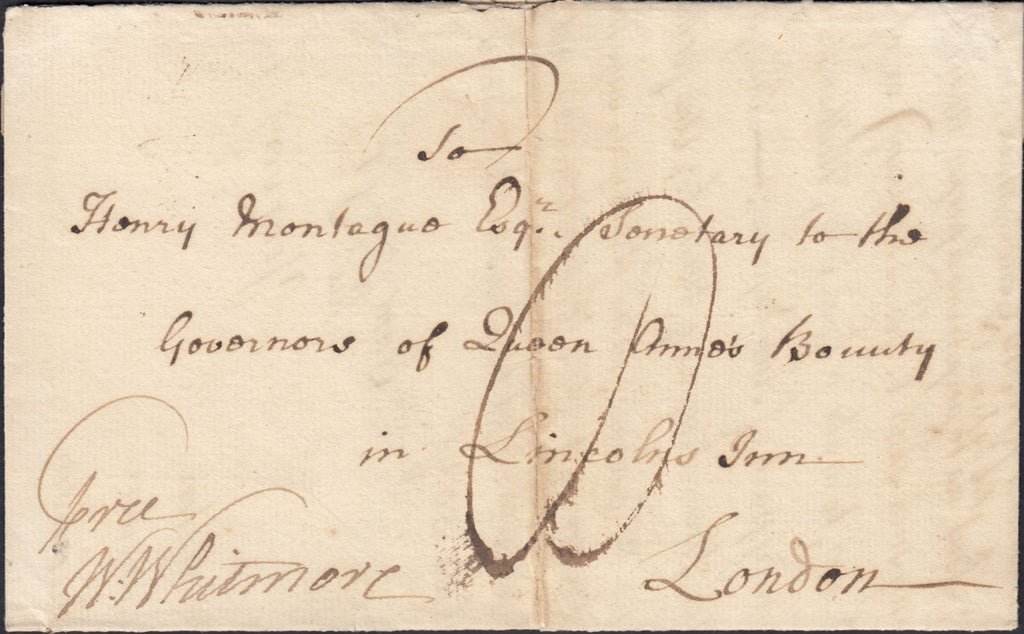 To
Henry Montague Esqr. Secretary to the
Governors of Queen Anne's Bounty
in Lincolns Inn
London
free
W. Whitmore